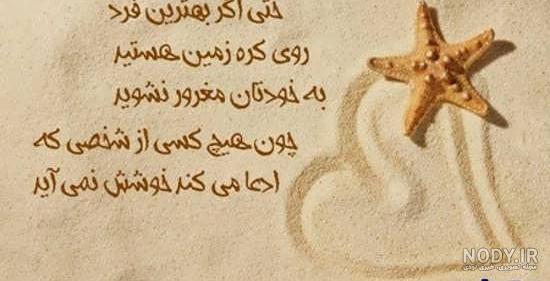 حتی اگر بهترین فرد
روی کره زمین هستید
به خودتان مغرور نشوید
چون هیچ کسی از شخصی که
ادعا می کند خوشش نمی آید
NODY.IR